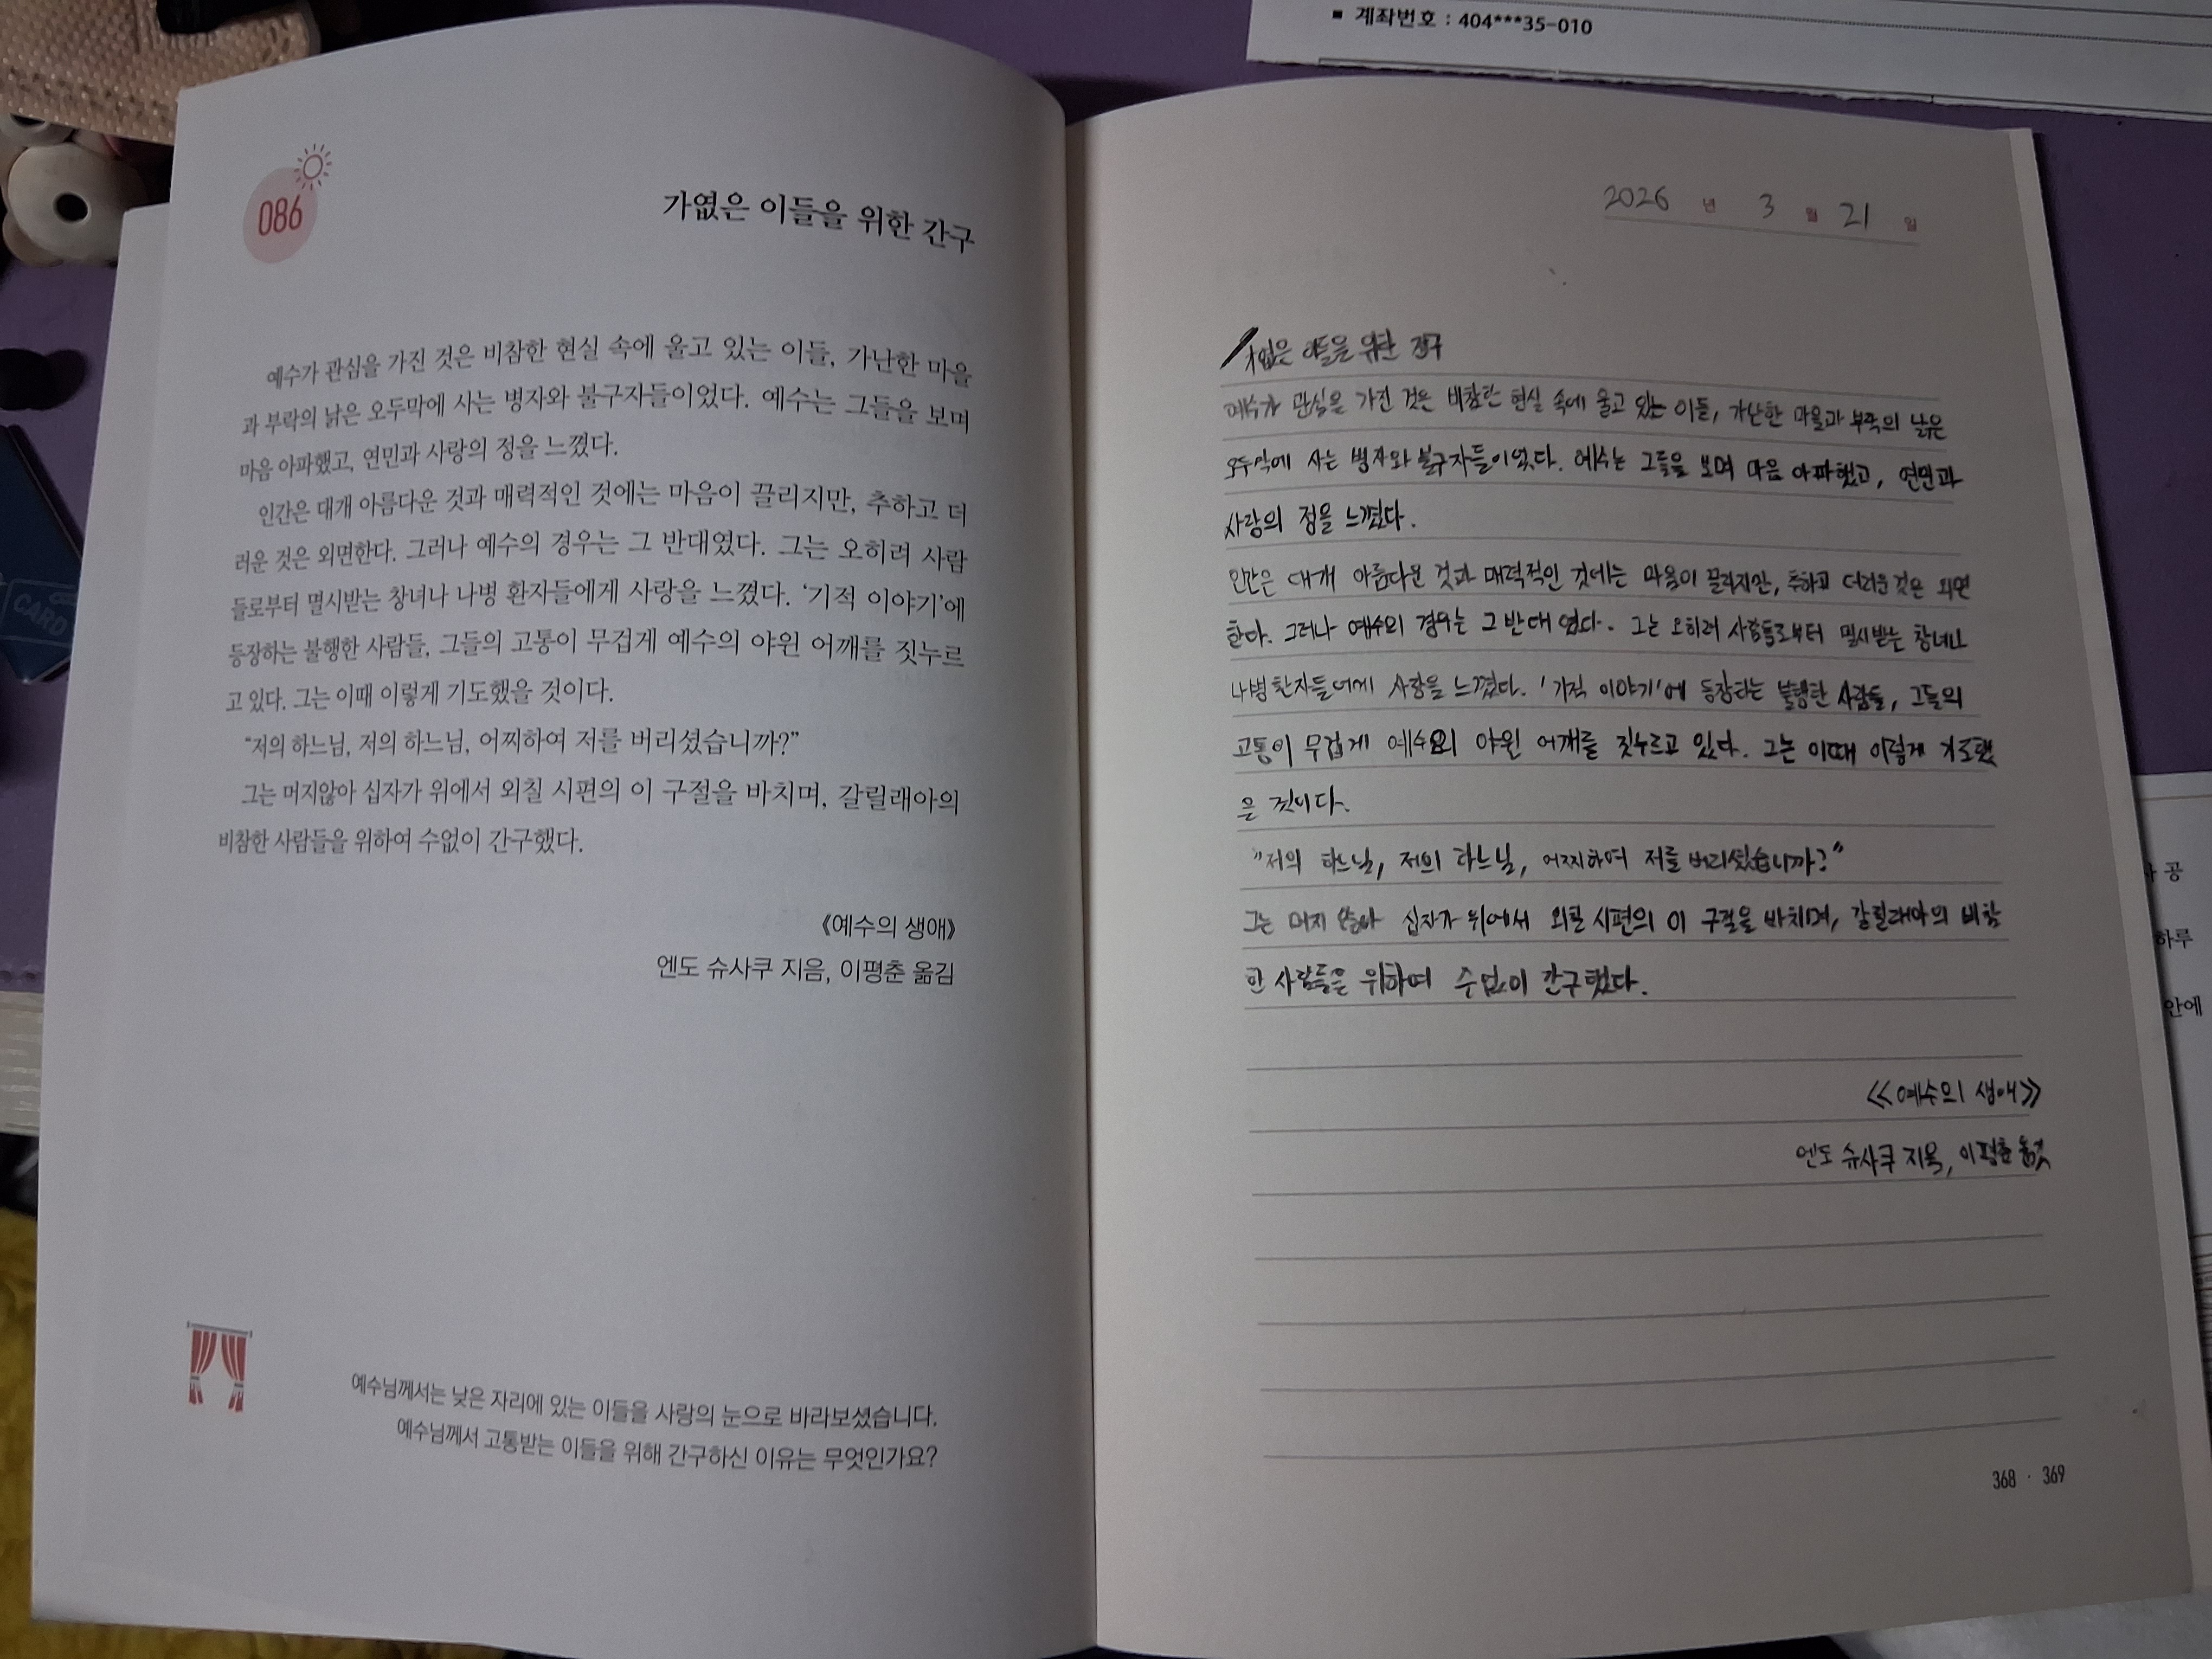 ■ 계좌번호 : 404***35-010
086
가엾은 이들을 위한 간구
예수가 관심을 가진 것은 비참한 현실 속에 울고 있는 이들, 가난한 마을
과 부락의 낡은 오두막에 사는 병자와 불구자들이었다. 예수는 그들을 보며
마음 아파했고, 연민과 사랑의 정을 느꼈다.
인간은 대개 아름다운 것과 매력적인 것에는 마음이 끌리지만, 추하고 더
러운 것은 외면한다. 그러나 예수의 경우는 그 반대였다. 그는 오히려 사람
들로부터 멸시받는 창녀나 나병 환자들에게 사랑을 느꼈다. ‘기적 이야기’에
등장하는 불행한 사람들, 그들의 고통이 무겁게 예수의 야윈 어깨를 짓누르
고 있다. 그는 이때 이렇게 기도했을 것이다.
“저의 하느님, 저의 하느님, 어찌하여 저를 버리셨습니까?”
그는 머지않아 십자가 위에서 외칠 시편의 이 구절을 바치며, 갈릴래아의
비참한 사람들을 위하여 수없이 간구했다.
《예수의 생애》
엔도 슈사쿠 지음, 이평춘 옮김
예수님께서는 낮은 자리에 있는 이들을 사랑의 눈으로 바라보셨습니다.
예수님께서 고통받는 이들을 위해 간구하신 이유는 무엇인가요?
2026 년 3 월 21 일
이들을 위한 간구
예수가 관심을 가진 것은 비참한 현실 속에 울고 있는 이들, 가난한 마을과 부락의 낡은
오두막에 사는 병자와 불구자들이었다. 예수는 그들을 보며 마음 아파했고, 연민과
사랑의 정을 느꼈다.
인간은 대개 아름다운 것과 매력적인 것에는 마음이 끌리지만, 추하고 더러운 것은 외면
한다. 그러나 예수의 경우는 그 반대였다. 그는 오히려 사람들로부터 멸시받는 창녀나
나병 환자들에게 사랑을 느꼈다. '기적 이야기'에 등장하는 불행한 사람들, 그들의
고통이 무겁게 예수의 야윈 어깨를 짓누르고 있다. 그는 이때 이렇게 기도했
을 것이다.
"저의 하느님, 저의 하느님, 어찌하여 저를 버리셨습니까?"
그는 머지 않아 십자가 위에서 외칠 시편의 이 구절을 바치며, 갈릴래아의 비참
한 사람들을 위하여 수없이 간구했다.
≪예수의 생애≫
엔도 슈사쿠 지음, 이평춘 옮김
368 · 369
공
하루
안에
CARD